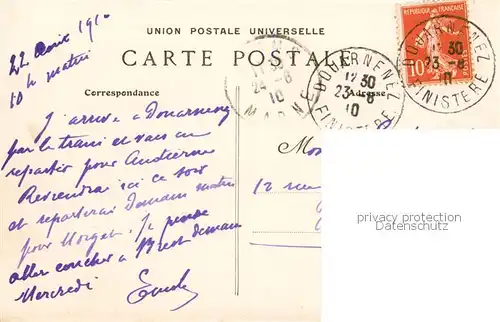 22 Aout 1910
10 h matin
UNION POSTALE UNIVERSELLE
CARTE POSTALE
Correspondance
Adresse
J'arrive à Douarnenez
par le train et vais en
repartir pour Audierne
Reviendrai ici ce soir
et repartirai Demain matin
pour Morgat. Je pense
aller coucher à Brest demain
Mercredi
REPUBLIQUE FRANÇAISE
10
DOUARNENEZ
12 30
23 - 8
10
FINISTERE
DOUARNENEZ
12 30
23 - 8
10
FINISTERE
24 - 8
10
MARNE
12 rue
privacy protection
Datenschutz